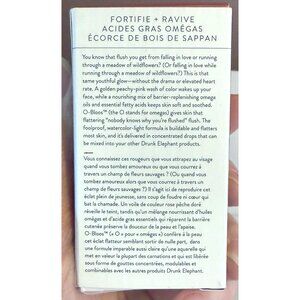 FORTIFIE + RAVIVE
ACIDES GRAS OMÉGAS
ÉCORCE DE BOIS DE SAPPAN
You know that flush you get from falling in love or running
through a meadow of wildflowers? (Or falling in love while
running through a meadow of wildflowers?) This is that
same youthful glow—without the drama or elevated heart
rate. A golden peachy-pink wash of color wakes up your
face, while a nourishing mix of barrier-replenishing omega
oils and essential fatty acids keeps skin soft and soothed.
O-Bloos™ (the O stands for omegas) gives skin that
flattering "nobody knows why you're flushed" flush. The
foolproof, watercolor-light formula is buildable and flatters
most skin, and it's delivered in concentrated drops that can
be mixed into your other Drunk Elephant products.
Vous connaissez ces rougeurs que vous attrapez au visage
quand vous tombez amoureux ou que vous courez à
travers un champ de fleurs sauvages ? (Ou quand vous
tombez amoureux alors que vous courez à travers un
champ de fleurs sauvages ?) Il s'agit ici de reproduire cet
éclat plein de jeunesse, sans coup de foudre ni cœur qui
bat la chamade. Un voile de couleur rose pêche doré
réveille le teint, tandis qu'un mélange nourrissant d'huiles
oméga et d'acide gras essentiels qui réparent la barrière
cutanée préserve la douceur de la peau et l'apaise.
O-Bloos™ (« O » pour « omégas ») confère à la peau
cet éclat flatteur semblant sortir de nulle part, dans
une formule imparable aussi claire qu'une aquarelle qui
met en valeur la plupart des carnations et qui est libérée
sous forme de gouttes concentrées, modulables et
combinables avec les autres produits Drunk Elephant.